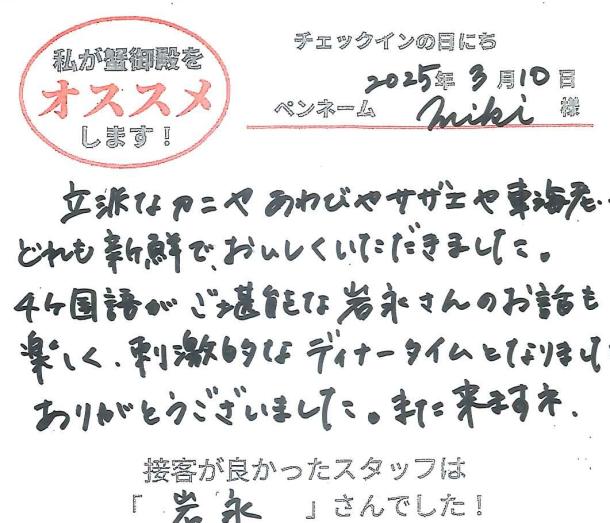 私が蟹御殿を
オススメ
します！
チェックインの日にち
2025年 3月10日
ペンネーム miki 様
立派なカニや あわびやサザエや東海老・
どれも新鮮で、おいしくいただきました。
4ケ国語が ご堪能な 岩永さんのお話も
楽しく、刺激的な ディナータイムとなりました
ありがとうございました。また来ますネ.
接客が良かったスタッフは
「 岩永 」さんでした！